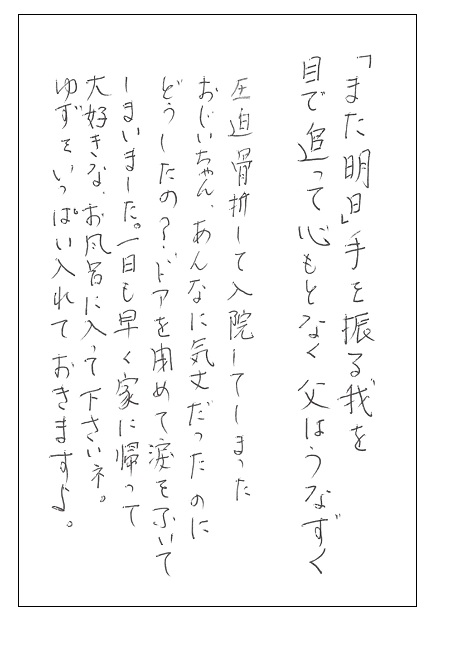 「また明日」手を振る我を
目で追って心もとなく父はうなずく
圧迫骨折して入院してしまった
おじいちゃん、あんなに気丈だったのに
どうしたの？ドアを閉めて涙をふいて
しまいました。一日も早く家に帰って
大好きな、お風呂に入って下さいネ。
ゆずをいっぱい入れておきますよ。